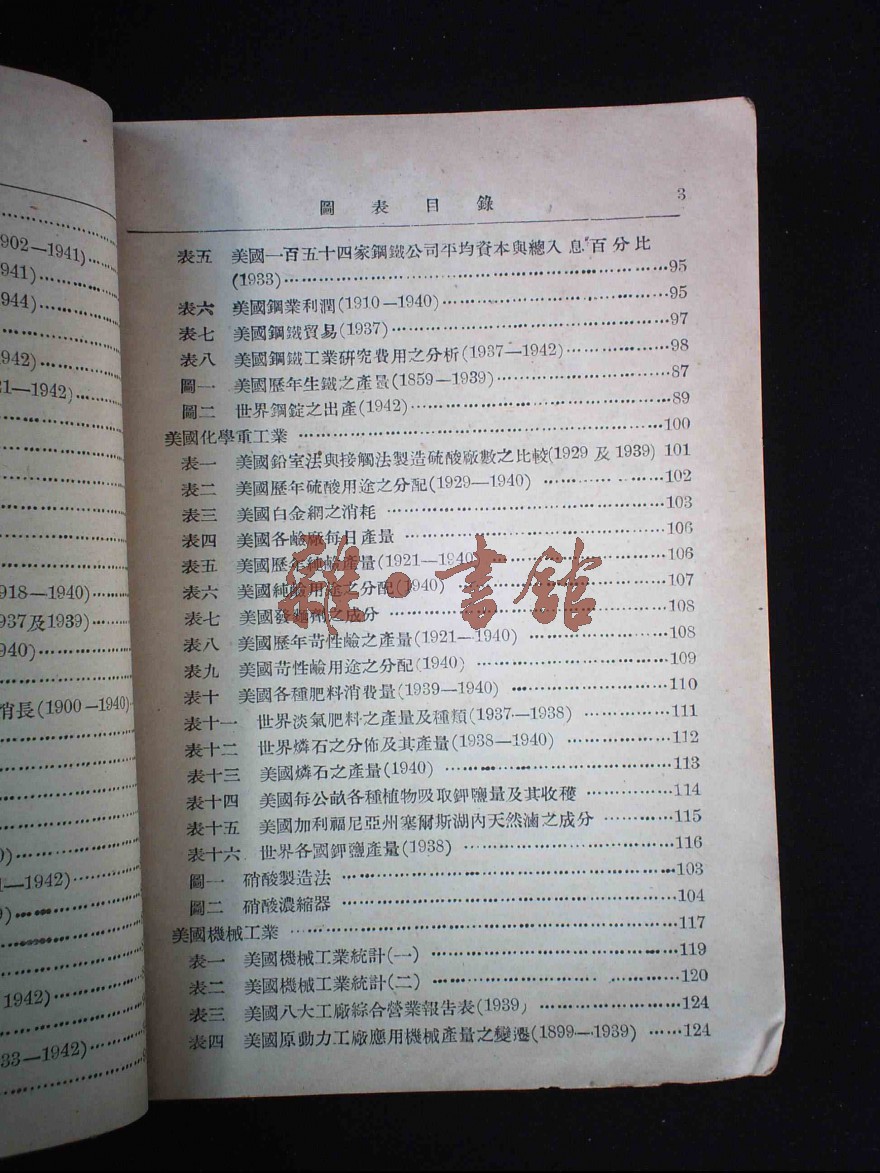 902—1941)
941)
944)
942)
21—1942)
918—1940)
937及1939)
940)
消長(1900—1940)
)
1—1942)
9)
1942)
33—1942)
圖表目錄 3
表五 美國一百五十四家鋼鐵公司平均資本與總入息百分比
(1933)……95
表六 美國鋼業利潤(1910—1940)……95
表七 美國鋼鐵貿易(1937)……97
表八 美國鋼鐵工業研究費用之分析(1937—1942)……98
圖一 美國歷年生鐵之產量(1859—1939)……87
圖二 世界鋼錠之出產(1942)……89
美國化學重工業……100
表一 美國鉛室法與接觸法製造硫酸廠數之比較(1929及1939) 101
表二 美國歷年硫酸用途之分配(1929—1940)……102
表三 美國白金網之消耗……103
表四 美國各鹼廠每日產量……106
表五 美國歷年純鹼產量(1921—1940)……106
表六 美國純鹼用途之分配(1940)……107
表七 美國發麵劑之成分……108
表八 美國歷年苛性鹼之產量(1921—1940)……108
表九 美國苛性鹼用途之分配(1940)……109
表十 美國各種肥料消費量(1939—1940)……110
表十一 世界淡氣肥料之產量及種類(1937—1938)……111
表十二 世界燐石之分佈及其產量(1938—1940)……112
表十三 美國燐石之產量(1940)……113
表十四 美國每公畝各種植物吸取鉀鹽量及其收穫……114
表十五 美國加利福尼亞州塞爾斯湖內天然滷之成分……115
表十六 世界各國鉀鹽產量(1938)……116
圖一 硝酸製造法……103
圖二 硝酸濃縮器……104
美國機械工業……117
表一 美國機械工業統計(一)……119
表二 美國機械工業統計(二)……120
表三 美國八大工廠綜合營業報告表(1939)……124
表四 美國原動力工廠應用機械產量之變遷(1899—1939)……124
雜·書館